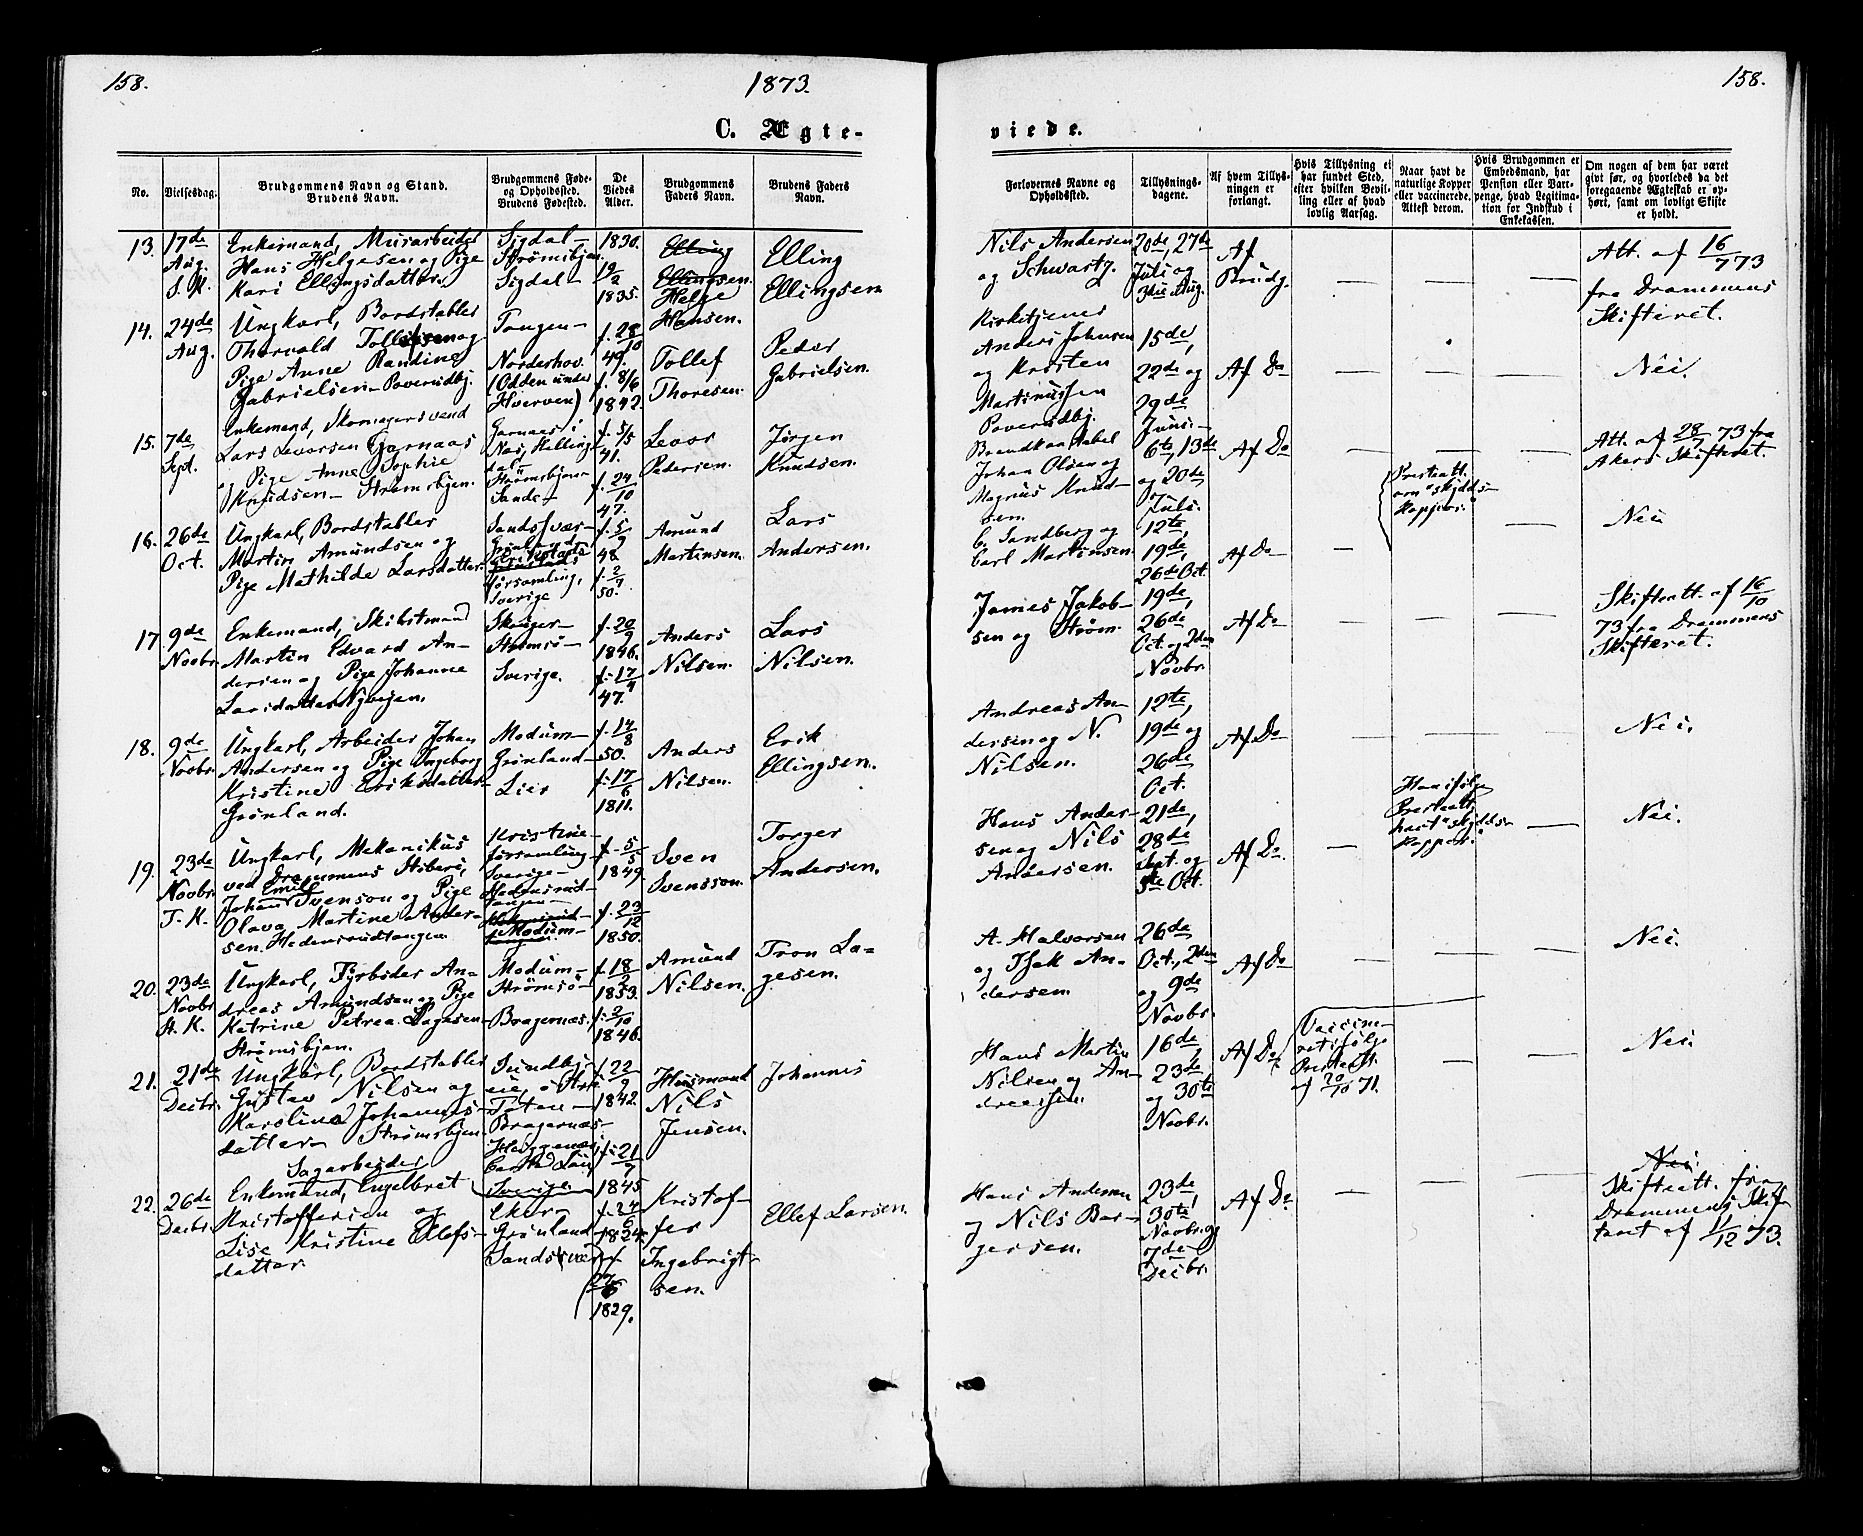 158.
1873.
158.
C. Ægte-
viede.
No.
Vielsesdag.
Brudgommens Navn og Stand.
Brudens Navn.
Brudgommens Føde-
og Opholdssted.
Brudens Fødested.
De
Viedes
Alder.
Brudgommens
Faders Navn.
Brudens Faders
Navn.
Forlovernes Navne og
Opholdssted.
Tillysnings-
dagene.
Af hvem Tillys-
ningen er
forlangt.
Hvis Tillysning ei
har fundet Sted,
efter hvilken Bevil-
ling eller af hvad
lovlig Aarsag.
Naar havt de
naturlige Kopper
eller vaccinerede.
Attest derom.
Hvis Brudgommen er
Embedsmand, har
Pension eller Var-
penge, hvad Legitima-
tion for Indskud i
Enkekassen.
Om nogen af dem har været
gift før, og hvorledes da det
foregaaende Ægteskab er op-
hørt, samt om lovligt Skifte
er holdt.
13.
17de
Aug.
S. K.
Enkemand, Murarbeider
Hans Helgesen og Pige
Kari Ellingsdatter.
Sigdal-
Strømsbjen.
Sigdal-
1830.
19/2
1835.
Elling
Ellingsen.
Helge
Hansen.
Elling
Ellingsen
Nils Andersen
og Schwartz.
20de, 27de
Juli og
3die Aug.
Af
Brudg.
Att. af 16/7 73
fra Drammens
Skifteret.
14.
24de
Aug.
Ungkarl, Bordstabler
Thorvald Tollefsen og
Pige Anne Randine
Gabrielsen - Poverudbj.
Tangen-
Norderhov.
(Odden under
Hverven)
f. 28/10
49.
f. 8/6
1842.
Tollef
Thoresen.
Peder
Gabrielsen.
Kirketjener
Anders Johnsen
og Kristen
Martinussen
Poverudbj.
15de,
22de og
29de
Juni.-
Af Do
Nei.
15.
7de
Sept.
Enkemand, Skomagersvend
Lars Levorsen Garnaas
og Pige Anne Sophie
Knudsen - Strømsbjen.
Garnaas i
Nas, Halling
dal-
Strømsbjen-
Sande-
f. 5/5
41.
f. 24/10
47.
Levor
Pedersen.
Jørgen
Knudsen.
Brandkonstabel
Johan Olsen og
Magnus Knud-
sen.
6te, 13de
og 20de,
Juli.
Af Do
Att. af 28/7 73 fra
Akers Skifteret.
16.
26de
Oct.
Ungkarl, Bordstabler
Martin Amundsen og
Pige Mathilde Larsdatter.
Sandsvær-
Grønland
forsamling,
Sverige
f. 5/9
48
f. 2/7
50.
Amund
Martinsen.
Lars
Andersen.
C. Sandberg og
Carl Martinsen
12te,
19de,
26de Oct.
Af Do
Presteatt.
om "skydds-
koppor."
Nei
17.
9de
Novbr.
Enkemand, Skibsmand
Martin Edvard An-
dersen og Pige Johanne
Larsdatter Nybyen.
Skoger-
Strømsø-
Sverige.
f. 20/9
1846.
f. 17/4
47.
Anders
Nilsen.
Lars
Nilsen.
James Jakob-
sen og Strøm.
19de,
26de
Oct. og 2den
Novbr.
Af Do
Skifteatt. af 16/10
73 fra Drammens
Skifteret.
18.
9de
Novbr.
Ungkarl, Arbeider Johan
Andersen og Pige Ingeborg
Kristine Eriksdatter
Grønland.
Modum-
Grønland-
Lier
f. 14/8
50.
f. 17/6
1811.
Anders
Nilsen.
Erik
Ellingsen.
Andreas An-
dersen og N.
Nilsen.
12te,
19de og
26de
Oct.
Af Do
Nei.
19.
23de
Novbr.
T. K.
Ungkarl, Mekanikus
ved Drammens Støberi,
Emil
Johan Svenson og Pige
Olava Martine Ander-
sen. Hedensrudtangen.
Kristine-
forsamling-
Sverige-
Hedensrud-
tangen-
Modum-
f. 5/5
1849.
f. 23/12
1850.
Sven
Svensson.
Torger
Andersen.
Hans Ander-
sen og Nils
Andersen.
21de,
28de
Sept. og
5te Oct.
Af Do.
Han ifølge
Presteatt.
havt "skydds-
koppor."
Nei.
20.
23de
Novbr.
St. K.
Ungkarl, Fyrbøder An-
dreas Amundsen og Pige
Katrine Petrea Lagesen-
Strømsbjen.
Modum-
Strømsø-
Bragernæs.
f. 18/2
1853.
f. 2/10
1846.
Amund
Nilsen.
Tron La-
gesen.
A. Halvorsen
og Isak An-
dersen.
26de
Oct., 2den
og 9de
Novbr.
Af Do
Nei.
21.
21de
Decbr.
Ungkarl, Bordstabler
Gustav Nilsen og
Karoline Johannes-
datter - Strømsbjen
Sundbj
Toten-
Bragernæs-
Sverige
f. 22/9
1842.
f. 21/7
1845
Husmand
Nils
Jensen.
Johannes
Hans Martin
Nilsen og An-
dreassen.
16de,
23de
og 30te
Novbr.
Af Do
Vaccine-
ret ifølge
Presteatt.
af 20/10 71.
Nei.
22.
26de
Decbr.
Sagarbeider
Enkemand, Engelbret
Kristoffersen og
Lise Kristine Ellefs-
datter.
Eker-
Grønland
Sandsvær
f. 24/6
1824.
f.
1829.
Kristof-
fer
Ingebrigt-
sen.
Ellef Larsen.
Hans Andersen
og Nils Bør-
gersen.
23de,
30te
Novbr. og
7de
Decbr.
Af Do
Nei
Skifteatt. fra
Drammens Skif
teret af 11/12 73.